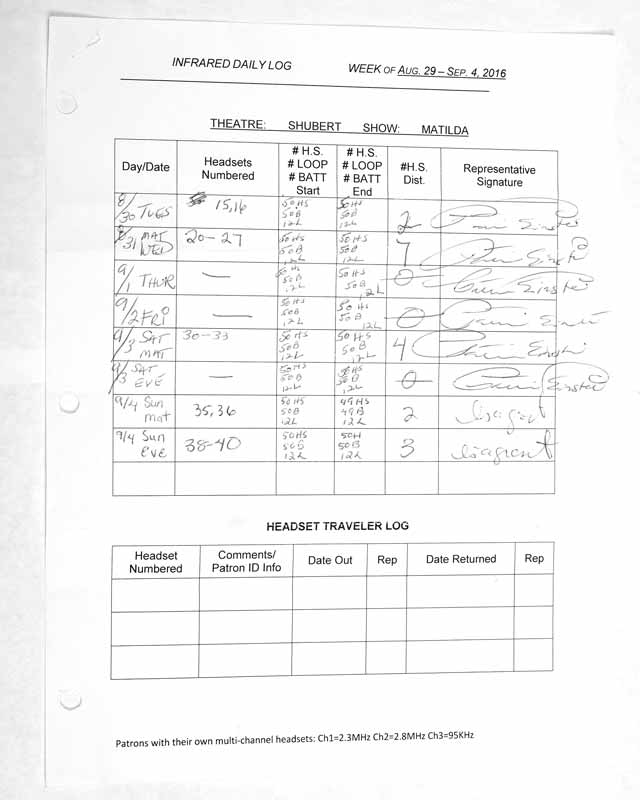 INFRARED DAILY LOG WEEK OF AUG. 29 – SEP. 4, 2016
THEATRE: SHUBERT SHOW: MATILDA
Day/Date Headsets Numbered # H.S. # LOOP # BATT Start # H.S. # LOOP # BATT End #H.S. Dist. Representative Signature
8/30 TUES 15,16 50HS 50B 12L 50HS 50B 12L 2
8/31 MAT WED 20-27 50HS 50B 12L 50HS 50B 12L 7
9/1 THUR — 50HS 50B 12L 50HS 50B 12L 0
9/2 FRI — 50HS 50B 12L 50HS 50B 12L 0
9/3 SAT MAT 30-33 50HS 50B 12L 50HS 50B 12L 4
9/3 SAT EVE — 50HS 50B 12L 50HS 50B 12L 0
9/4 Sun mat 35,36 50HS 50B 12L 49HS 49B 12L 2
9/4 Sun EVE 38-40 50HS 50B 12L 50H 50B 12L 3
HEADSET TRAVELER LOG
Headset Numbered Comments/ Patron ID Info Date Out Rep Date Returned Rep
Patrons with their own multi-channel headsets: Ch1=2.3MHz Ch2=2.8MHz Ch3=95KHz